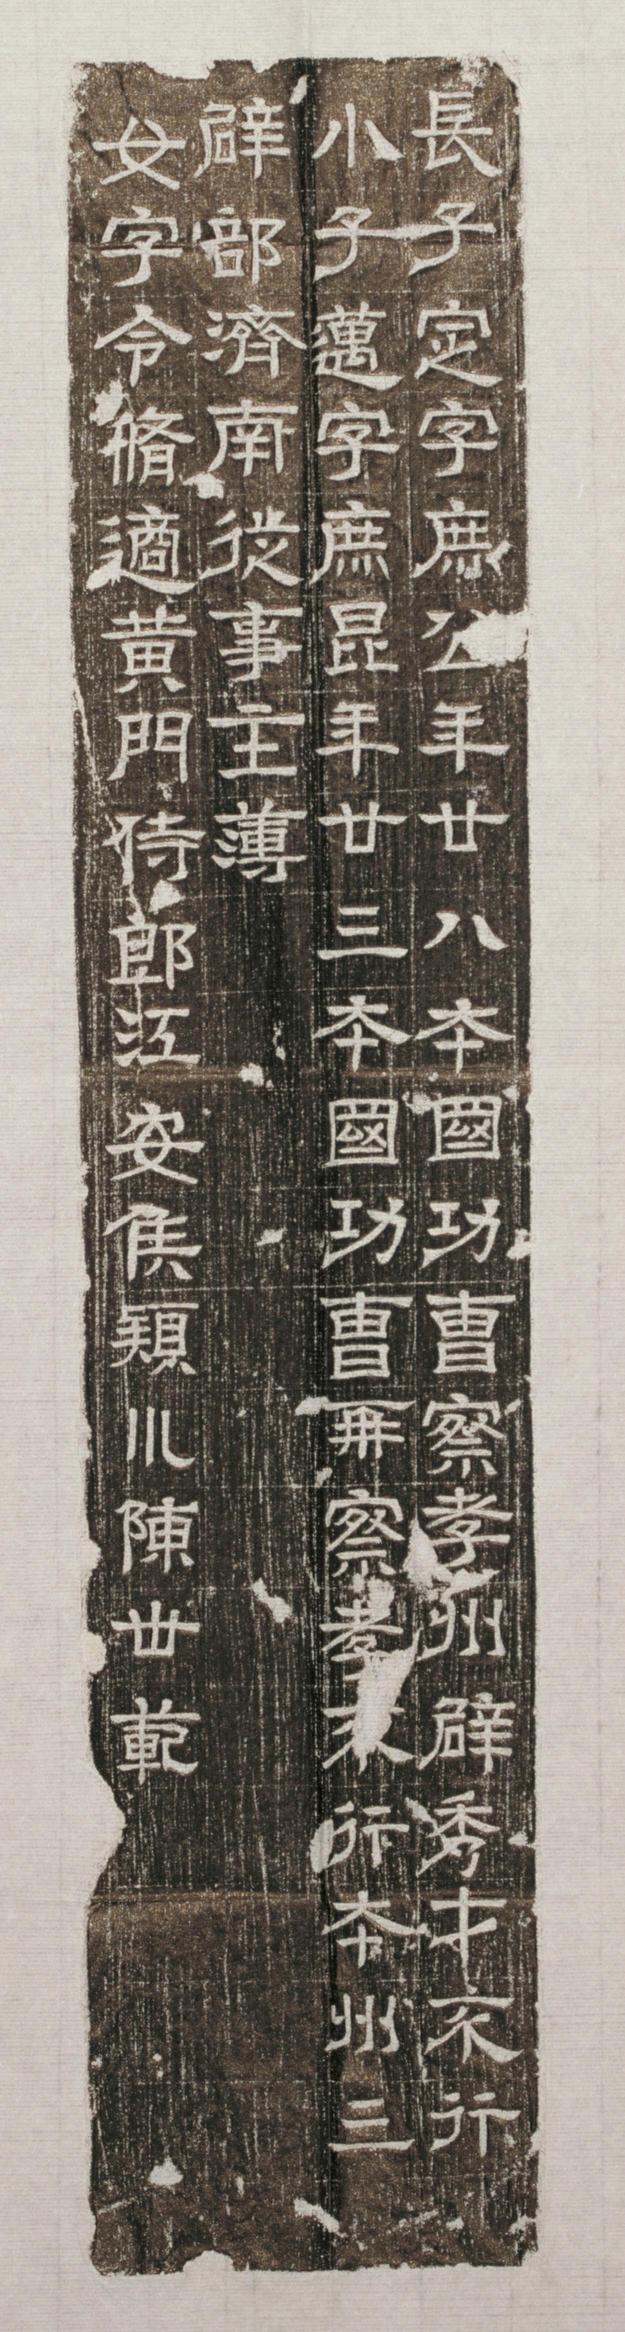 長子定字庶公年廿八本國功曹察孝州辟秀才不行
小子邁字庶昆年廿三本國功曹再察孝不行本州三
辟部濟南從事主薄
女字令脩適黃門侍郎江安侯潁川陳世範